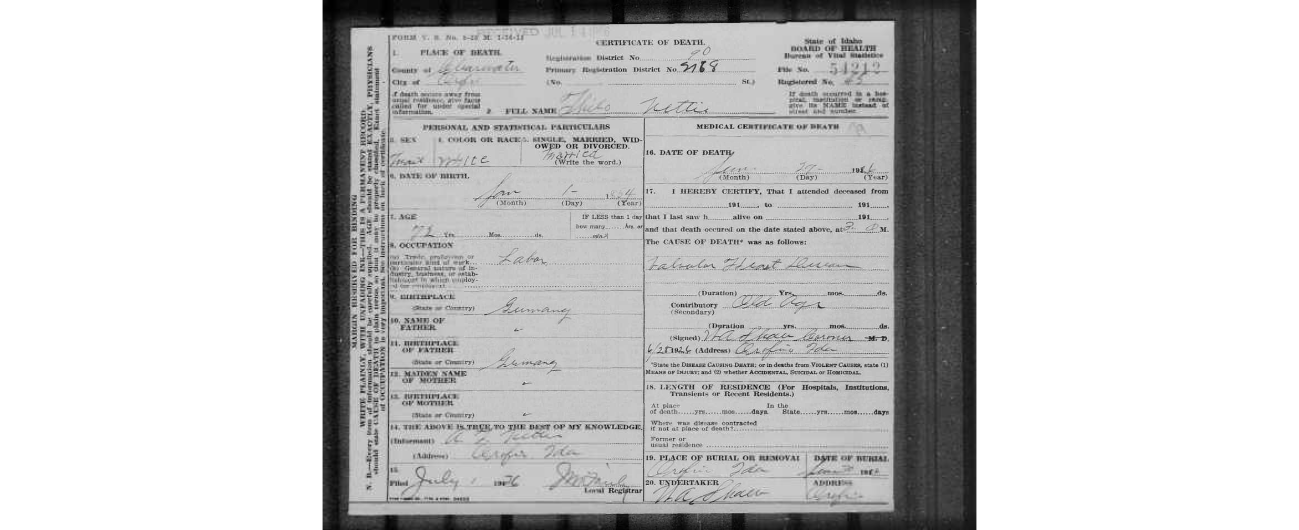 FORM V. S. No. 5-20 M. 1-14-14
RECEIVED JUL
CERTIFICATE OF DEATH.
State of Idaho
BOARD OF HEALTH
Bureau of Vital Statistics
1. PLACE OF DEATH.
County of Clearwater
City of
Registration District No. 90
Primary Registration District No. 2168
(No. St.)
File No. 54212
Registered No. 45
If death occurs away from usual residence, give facts called for under special information.
If death occurred in a hospital, institution or camp, give its NAME instead of street and number.
2. FULL NAME Nettie
PERSONAL AND STATISTICAL PARTICULARS
3. SEX
4. COLOR OR RACE
White
5. SINGLE, MARRIED, WIDOWED OR DIVORCED.
Married
(Write the word.)
6. DATE OF BIRTH
Jan 1-
(Month) (Day) (Year)
7. AGE
72 Yrs. Mos. ds.
IF LESS than 1 day
how many hrs. or
min.?
8. OCCUPATION
(a) Trade, profession or
particular kind of work
(b) General nature of industry, business, or establishment in which employed
Labor
9. BIRTHPLACE
(State or Country) Germany
10. NAME OF FATHER
"
11. BIRTHPLACE OF FATHER
(State or Country) Germany
12. MAIDEN NAME OF MOTHER
"
13. BIRTHPLACE OF MOTHER
(State or Country) "
14. THE ABOVE IS TRUE TO THE BEST OF MY KNOWLEDGE.
(Informant)
(Address) Orofino Ida
15.
Filed July 1 1926
Local Registrar
MEDICAL CERTIFICATE OF DEATH
16. DATE OF DEATH
June
(Month) (Day) (Year)
17. I HEREBY CERTIFY, That I attended deceased from
191 , to 191
that I last saw h alive on 191
and that death occured on the date stated above, at M.
The CAUSE OF DEATH* was as follows:
Valvular Heart Disease
(Duration) Yrs. mos. ds.
Contributory Old Age
(Secondary)
(Duration yrs. mos. ds.
(Signed) W. A. Shaw Coroner M. D.
1926 (Address) Orofino Ida
*State the DISEASE CAUSING DEATH; or in deaths from VIOLENT CAUSES, state (1)
MEANS OF INJURY; and (2) whether ACCIDENTAL, SUICIDAL or HOMICIDAL.
18. LENGTH OF RESIDENCE (For Hospitals, Institutions, Transients or Recent Residents.)
At place of death yrs. mos. days In the State yrs. mos. days
Where was disease contracted
if not at place of death?
Former or
usual residence
19. PLACE OF BURIAL OR REMOVAL
Orofino Ida
DATE OF BURIAL
20. UNDERTAKER
W. A. Shaw
ADDRESS
Orofino
MARGIN RESERVED FOR BINDING
WRITE PLAINLY, WITH UNFADING INK—THIS IS A PERMANENT RECORD.
N. B.—Every item of information should be carefully supplied. AGE should be stated EXACTLY. PHYSICIANS
should state CAUSE OF DEATH in plain terms, so that it may be properly classified. Exact statement
of OCCUPATION is very important. See instructions on back of certificate.